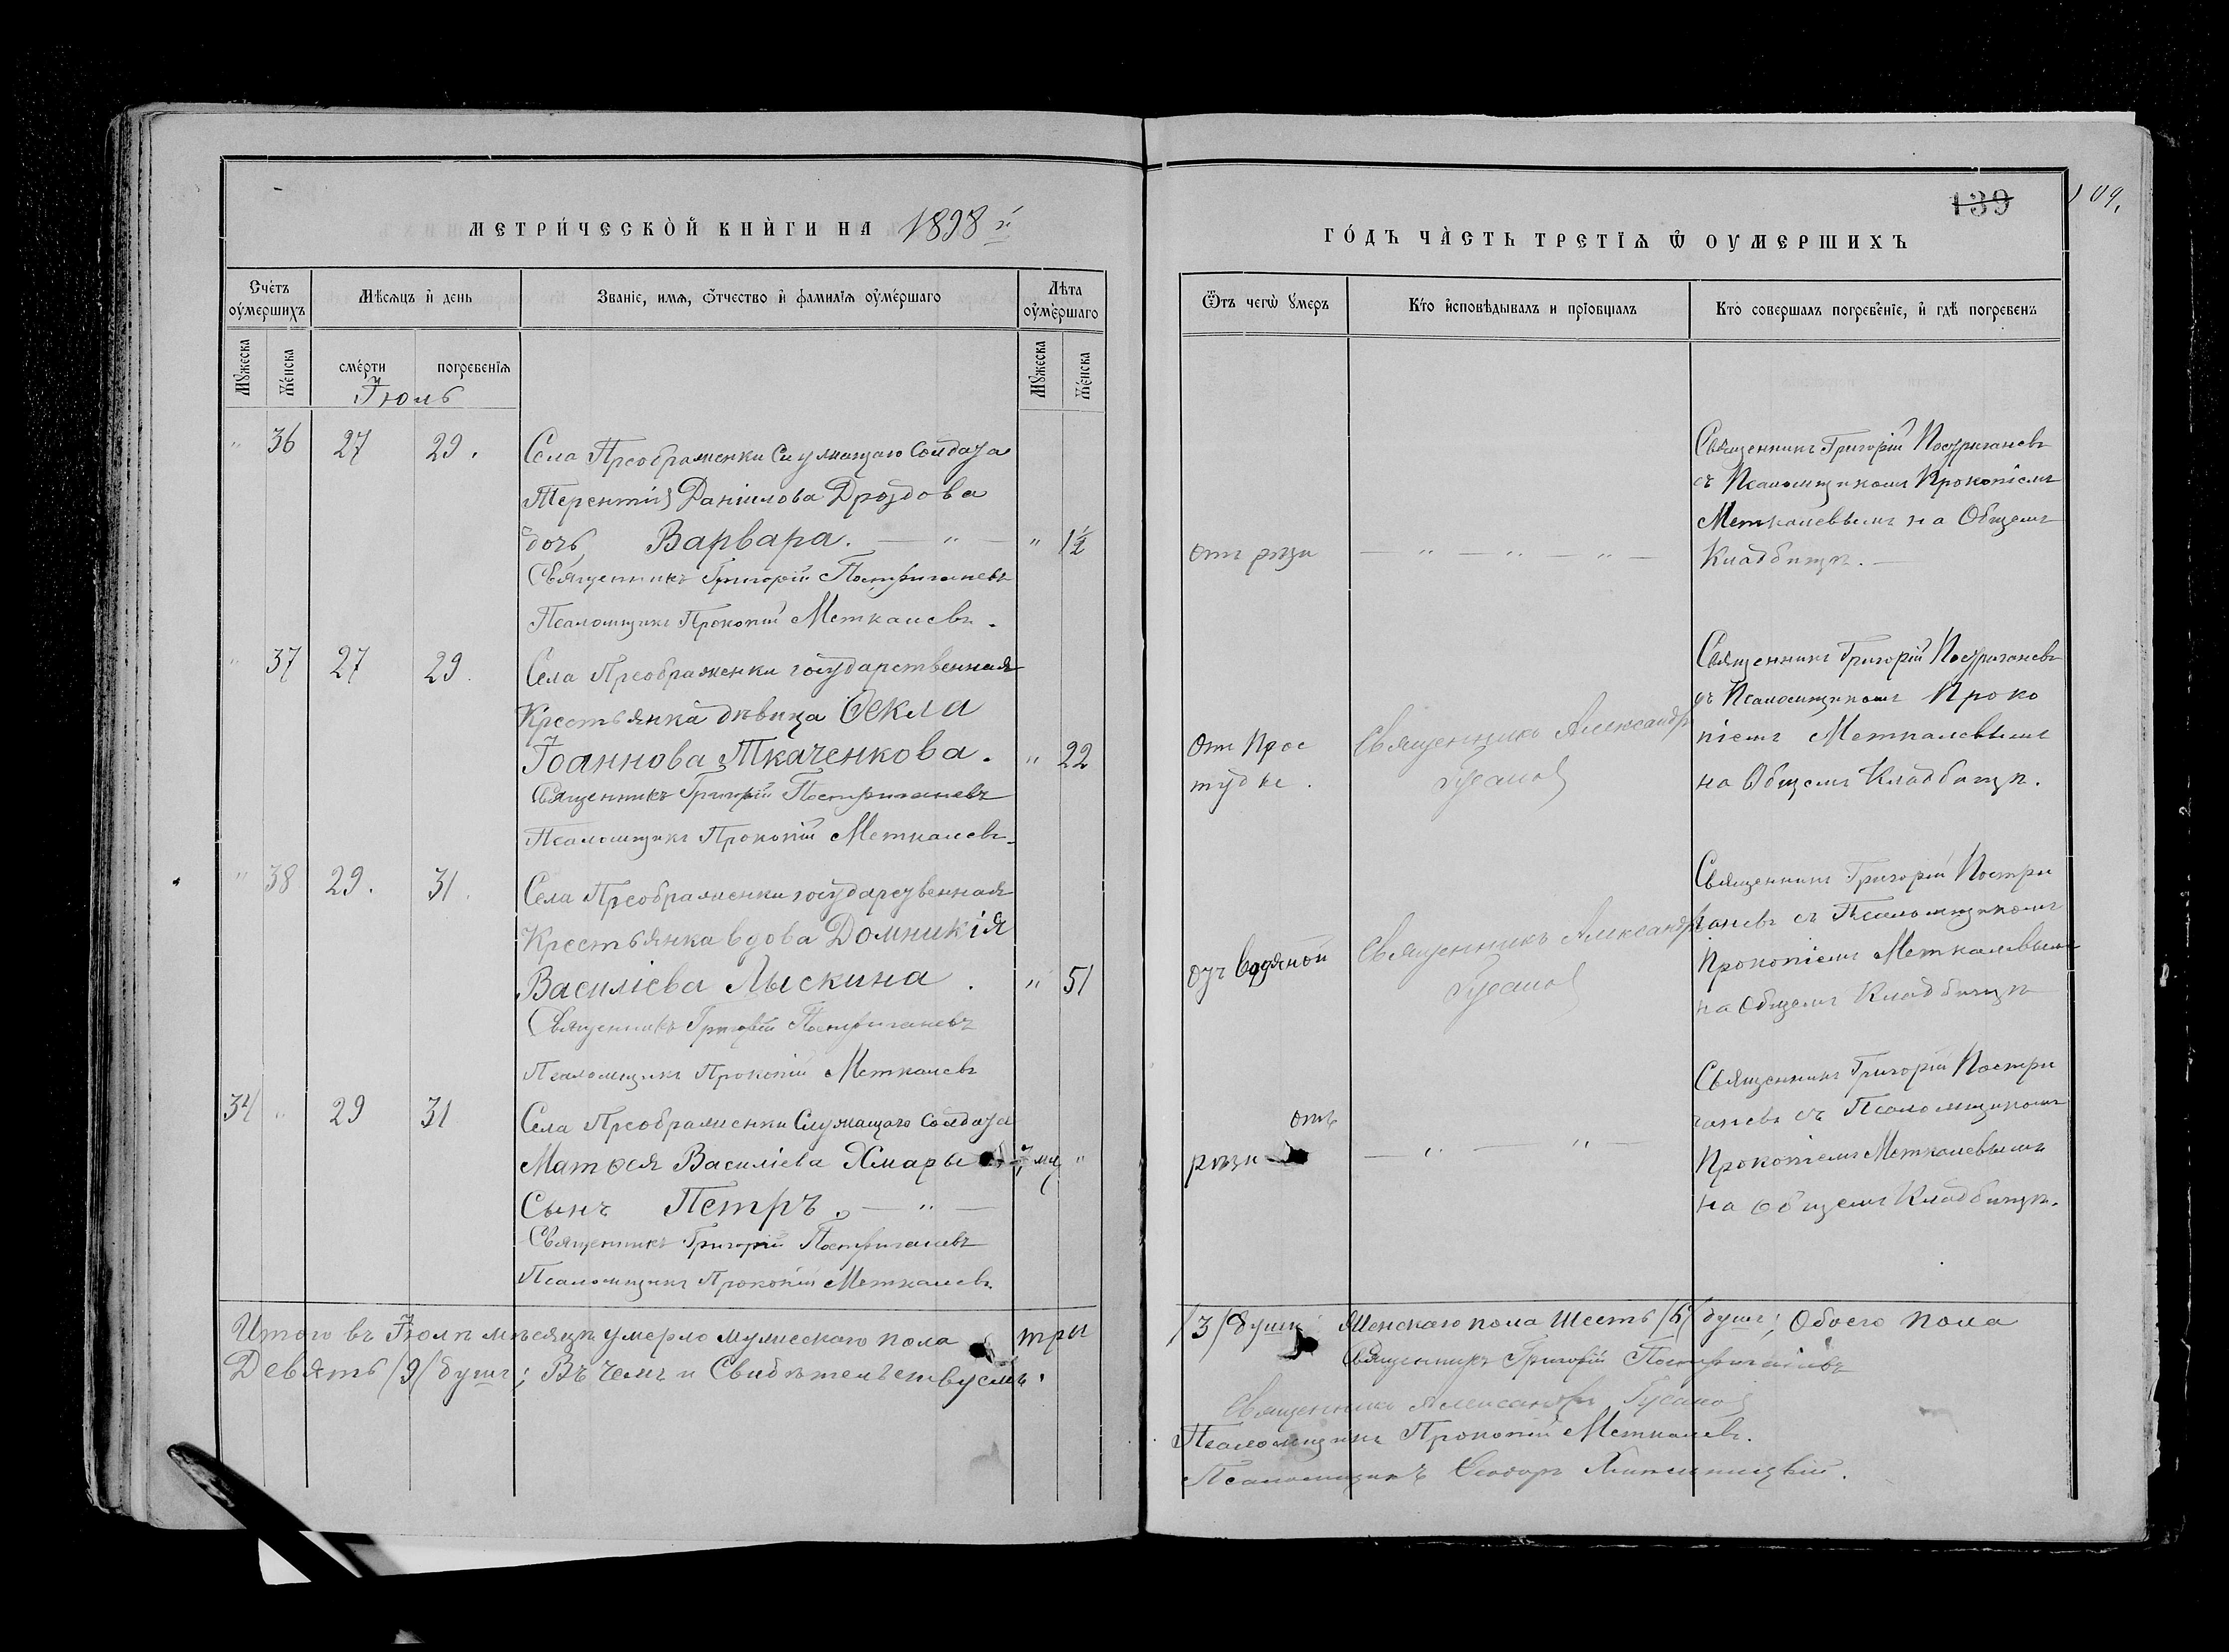 139
109.
МЕТРИ́ЧЕСКО̀Й КНЍГИ НА 1898 й
ГО́ДЪ ЧА̀СТЬ ТРЕТІѦ Ѽ ОУМЕРШИХЪ
Счетъ оу҆мершихъ
Мѣсѧцъ и҆ день
Званіе, имѧ, ѻ҆тчество и҆ фамиліѧ оу҆ме́ршаго
Лѣта оу҆ме́ршаго
Ѿтъ чегѡ̀ ᲂумеръ
Кто̀ и҆сповѣдывалъ и прїобщалъ
Кто̀ совершалъ погребенїе, и҆ гдѣ̀ погребенъ
Мꙋжеска
Же́нска
сме́рти
погребенїѧ
Мꙋжеска
Же́нска
Іюль
" 36 27 29.
Села Преображенки Служащаго Солдата
Терентія Даніилова Дроздова
дочь, Варвара. — " —
" 1½
Священникъ Григорій Постригачевъ
Псаломщикъ Прокопій Меткалевъ.
отъ рѣзи
— " — " — " —
Священникъ Григорій Постригачевъ
съ Псаломщикомъ Прокопіемъ
Меткалевымъ на Общемъ
Кладбищѣ. —
" 37 27 29.
Села Преображенки государственная
Крестьянка дѣвица Ѳекла
Іоаннова Ткаченкова.
" 22
Священникъ Григорій Постригачевъ
Псаломщикъ Прокопій Меткалевъ.
Отъ Прос
тудѣ.
Священникъ Александръ
Русанов
Священникъ Григорій Постригачевъ
съ Псаломщикомъ Проко
піемъ Меткалевымъ
на Общемъ Кладбищѣ.
" 38 29. 31.
Села Преображенки государственная
Крестьянка вдова Домникія
Василіева Лыскина.
" 51
Священникъ Григорій Постригачевъ
Псаломщикъ Прокопій Меткалевъ
отъ водяной
Священникъ Александръ
Русанов
Священникъ Григорій Постри
гачевъ съ Псаломщикомъ
Прокопіемъ Меткалевымъ
на Общемъ Кладбищѣ
34 " 29 31
Села Преображенки Служащаго Солдата
Матѳея Василіева Хмары
7 мц "
Сынъ Петръ. — " —
Священникъ Григорій Постригачевъ
Псаломщикъ Прокопій Меткалевъ.
отъ
рѣзи
— " — " —
Священникъ Григорій Постри
гачевъ съ Псаломщикомъ
Прокопіемъ Меткалевымъ
на общемъ Кладбищѣ.
Итого въ Іюлѣ мѣсяцѣ умерло мужескаго пола три
/3/ души Женскаго пола Шесть /6/ душъ; Обоего Пола
Девять /9/ душъ; Въ чемъ и Свидѣтельствуемъ.
Священникъ Григорій Постригачевъ
Священникъ Александръ Русанов
Псаломщикъ Прокопій Меткалевъ.
Псаломщикъ Ѳеодоръ